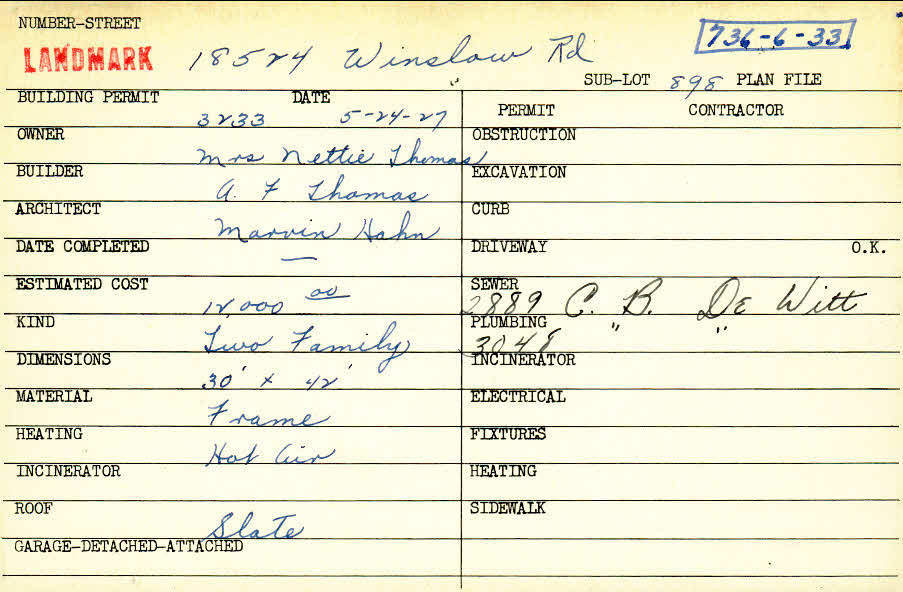 NUMBER-STREET
LANDMARK 18524 Winslow Rd
736-6-33
SUB-LOT 898 PLAN FILE
BUILDING PERMIT DATE
3233 5-24-27
OWNER
Mrs Nettie Thomas
BUILDER
A. F Thomas
ARCHITECT
Marvin Hahn
DATE COMPLETED
—
ESTIMATED COST
12,000 00
KIND
Two Family
DIMENSIONS
30' x 42'
MATERIAL
Frame
HEATING
Hot Air
INCINERATOR
ROOF
Slate
GARAGE-DETACHED-ATTACHED
PERMIT CONTRACTOR
OBSTRUCTION
EXCAVATION
CURB
DRIVEWAY O.K.
SEWER
2889 C. B. De Witt
PLUMBING
3048 " "
INCINERATOR
ELECTRICAL
FIXTURES
HEATING
SIDEWALK